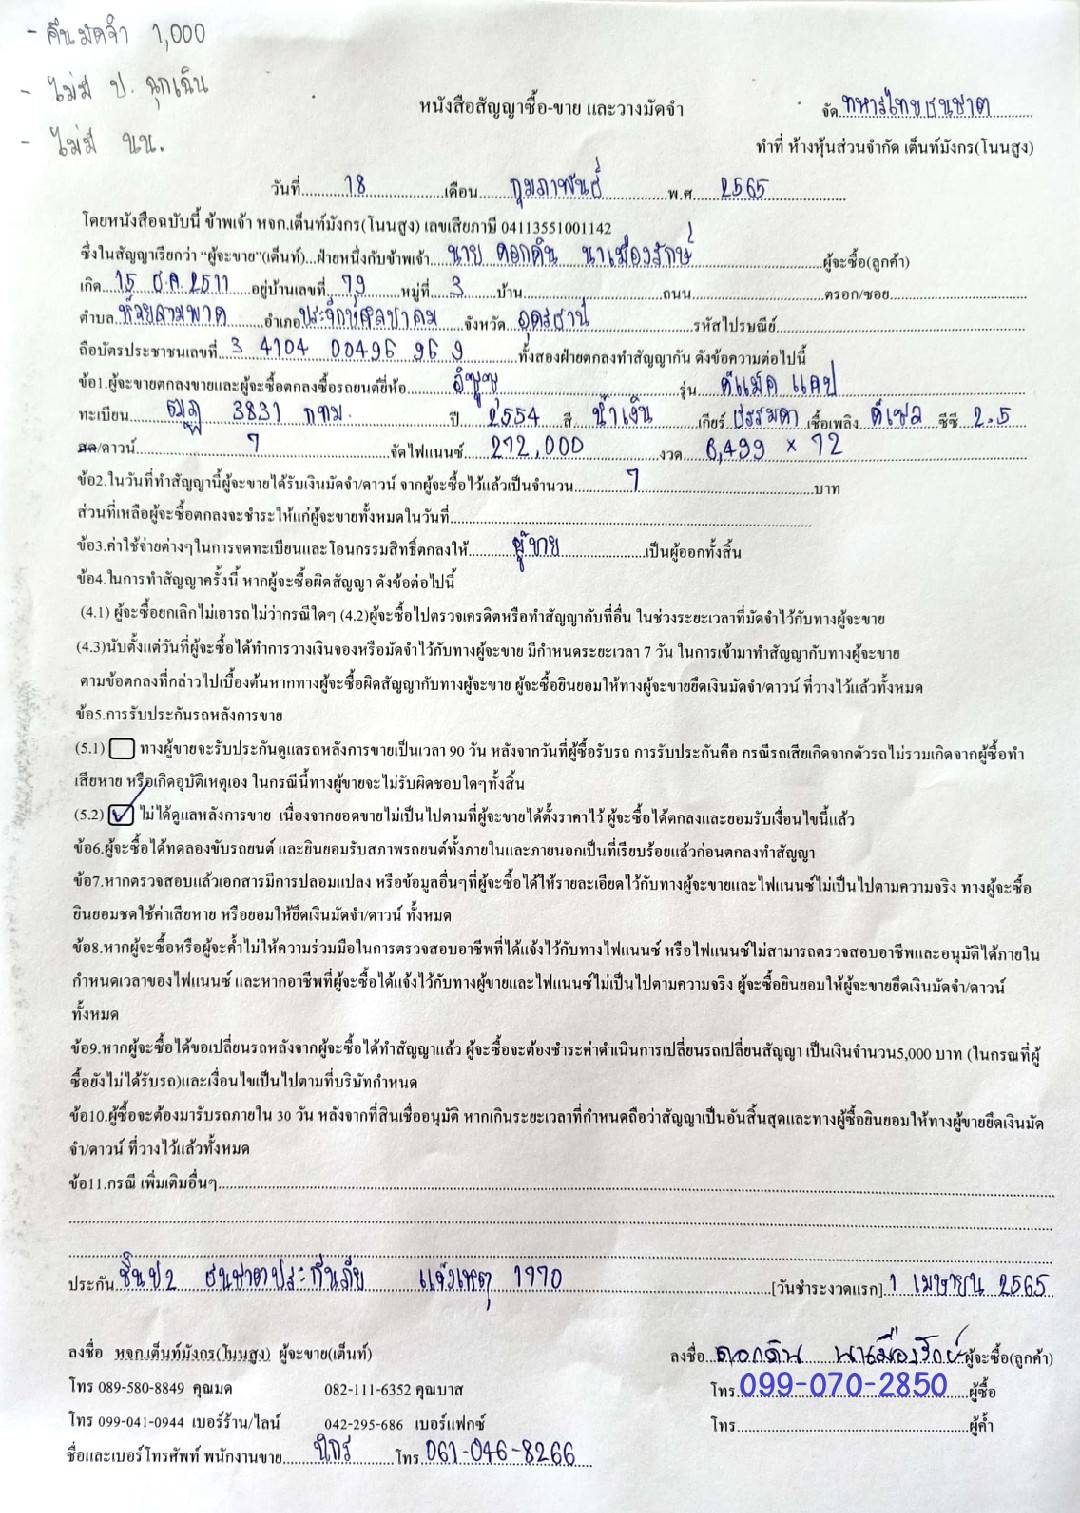 - คืนมัดจำ 1,000
- ไม่มี ป. ฉุกเฉิน
- ไม่มี นน.
หนังสือสัญญาซื้อ-ขาย และวางมัดจำ
จัด ทหารไทยธนชาต
ทำที่ ห้างหุ้นส่วนจำกัด เต็นท์มังกร(โนนสูง)
วันที่ 18 เดือน กุมภาพันธ์ พ.ศ. 2565
โดยหนังสือฉบับนี้ ข้าพเจ้า หจก.เต็นท์มังกร(โนนสูง) เลขเสียภาษี 04113551001142
ซึ่งในสัญญาเรียกว่า “ผู้จะขาย”(เต็นท์)...ฝ่ายหนึ่งกับข้าพเจ้า นาย ดอกดิน นาเมืองรักษ์ ผู้จะซื้อ(ลูกค้า)
เกิด 15 ธ.ค. 2511 อยู่บ้านเลขที่ 79 หมู่ที่ 3 บ้าน ถนน ตรอก/ซอย
ตำบล ห้วยสามพาด อำเภอ ประจักษ์ศิลปาคม จังหวัด อุดรธานี รหัสไปรษณีย์
ถือบัตรประชาชนเลขที่ 3 4104 00496 96 9 ทั้งสองฝ่ายตกลงทำสัญญากัน ดังข้อความต่อไปนี้
ข้อ1.ผู้จะขายตกลงขายและผู้จะซื้อตกลงซื้อรถยนต์ยี่ห้อ อีซูซุ รุ่น ดีแม็ค แคป
ทะเบียน ฒฎ 3831 กทม. ปี 2554 สี น้ำเงิน เกียร์ ธรรมดา เชื้อเพลิง ดีเซล ซีซี 2.5
สด/ดาวน์ 7 จัดไฟแนนซ์ 272,000 งวด 6,499 x 72
ข้อ2.ในวันที่ทำสัญญานี้ผู้จะขายได้รับเงินมัดจำ/ดาวน์ จากผู้จะซื้อไว้แล้วเป็นจำนวน 7 บาท
ส่วนที่เหลือผู้จะซื้อตกลงจะชำระให้แก่ผู้จะขายทั้งหมดในวันที่
ข้อ3.ค่าใช้จ่ายต่างๆในการจดทะเบียนและโอนกรรมสิทธิ์ตกลงให้ ผู้ขาย เป็นผู้ออกทั้งสิ้น
ข้อ4.ในการทำสัญญาครั้งนี้ หากผู้จะซื้อผิดสัญญา ดังข้อต่อไปนี้
(4.1) ผู้จะซื้อยกเลิกไม่เอารถ ไม่ว่ากรณีใดๆ (4.2)ผู้จะซื้อไปตรวจเครดิตหรือทำสัญญากับที่อื่น ในช่วงระยะเวลาที่มัดจำไว้กับทางผู้จะขาย
(4.3)นับตั้งแต่วันที่ผู้จะซื้อได้ทำการวางเงินจองหรือมัดจำไว้กับทางผู้จะขาย มีกำหนดระยะเวลา 7 วัน ในการเข้ามาทำสัญญากับทางผู้จะขาย
ตามข้อตกลงที่กล่าวไปเบื้องต้นหากทางผู้จะซื้อผิดสัญญากับทางผู้จะขาย ผู้จะซื้อยินยอมให้ทางผู้จะขายยึดเงินมัดจำ/ดาวน์ ที่วางไว้แล้วทั้งหมด
ข้อ5.การรับประกันรถหลังการขาย
(5.1) ทางผู้ขายจะรับประกันดูแลรถหลังการขายเป็นเวลา 90 วัน หลังจากวันที่ผู้ซื้อรับรถ การรับประกันคือ กรณีรถเสียเกิดจากตัวรถไม่รวมเกิดจากผู้ซื้อทำ
เสียหาย หรือเกิดอุบัติเหตุเอง ในกรณีนี้ทางผู้ขายจะไม่รับผิดชอบใดๆทั้งสิ้น
(5.2) ไม่ได้ดูแลหลังการขาย เนื่องจากยอดขายไม่เป็นไปตามที่ผู้จะขายได้ตั้งราคาไว้ ผู้จะซื้อได้ตกลงและยอมรับเงื่อนไขนี้แล้ว
ข้อ6.ผู้จะซื้อได้ทดลองขับรถยนต์ และยินยอมรับสภาพรถยนต์ทั้งภายในและภายนอกเป็นที่เรียบร้อยแล้วก่อนตกลงทำสัญญา
ข้อ7.หากตรวจสอบแล้วเอกสารมีการปลอมแปลง หรือข้อมูลอื่นๆที่ผู้จะซื้อได้ให้รายละเอียดไว้กับทางผู้จะขายและไฟแนนซ์ไม่เป็นไปตามความจริง ทางผู้จะซื้อ
ยินยอมชดใช้ค่าเสียหาย หรือยอมให้ยึดเงินมัดจำ/ดาวน์ ทั้งหมด
ข้อ8.หากผู้จะซื้อหรือผู้จะค้ำไม่ให้ความร่วมมือในการตรวจสอบอาชีพที่ได้แจ้งไว้กับทางไฟแนนซ์ หรือไฟแนนซ์ไม่สามารถตรวจสอบอาชีพและอนุมัติได้ภายใน
กำหนดเวลาของไฟแนนซ์ และหากอาชีพที่ผู้จะซื้อได้แจ้งไว้กับทางผู้ขายและไฟแนนซ์ไม่เป็นไปตามความจริง ผู้จะซื้อยินยอมให้ผู้จะขายยึดเงินมัดจำ/ดาวน์
ทั้งหมด
ข้อ9.หากผู้จะซื้อได้ขอเปลี่ยนรถหลังจากผู้จะซื้อได้ทำสัญญาแล้ว ผู้จะซื้อจะต้องชำระค่าดำเนินการเปลี่ยนรถเปลี่ยนสัญญา เป็นเงินจำนวน5,000 บาท (ในกรณที่ผู้
ซื้อยังไม่ได้รับรถ)และเงื่อนไขเป็นไปตามที่บริษัทกำหนด
ข้อ10.ผู้ซื้อจะต้องมารับรถภายใน 30 วัน หลังจากที่สินเชื่ออนุมัติ หากเกินระยะเวลาที่กำหนดถือว่าสัญญาเป็นอันสิ้นสุดและทางผู้ซื้อยินยอมให้ทางผู้ขายยึดเงินมัด
จำ/ดาวน์ ที่วางไว้แล้วทั้งหมด
ข้อ11.กรณี เพิ่มเติมอื่นๆ
ประกัน ชั้นป2 ธนชาตประกันภัย แจ้งเหตุ 1770 [วันชำระงวดแรก] 1 เมษายน 2565
ลงชื่อ หจก.เต็นท์มังกร(โนนสูง) ผู้จะขาย(เต็นท์)
ลงชื่อ ดอกดิน นาเมืองรักษ์ ผู้จะซื้อ(ลูกค้า)
โทร 089-580-8849 คุณมด 082-111-6352 คุณบาส
โทร 099-070-2850 ผู้ซื้อ
โทร 099-041-0944 เบอร์ร้าน/ไลน์ 042-295-686 เบอร์แฟกซ์
โทร ผู้ค้ำ
ชื่อและเบอร์โทรศัพท์ พนักงานขาย นิกร โทร 061-046-8266